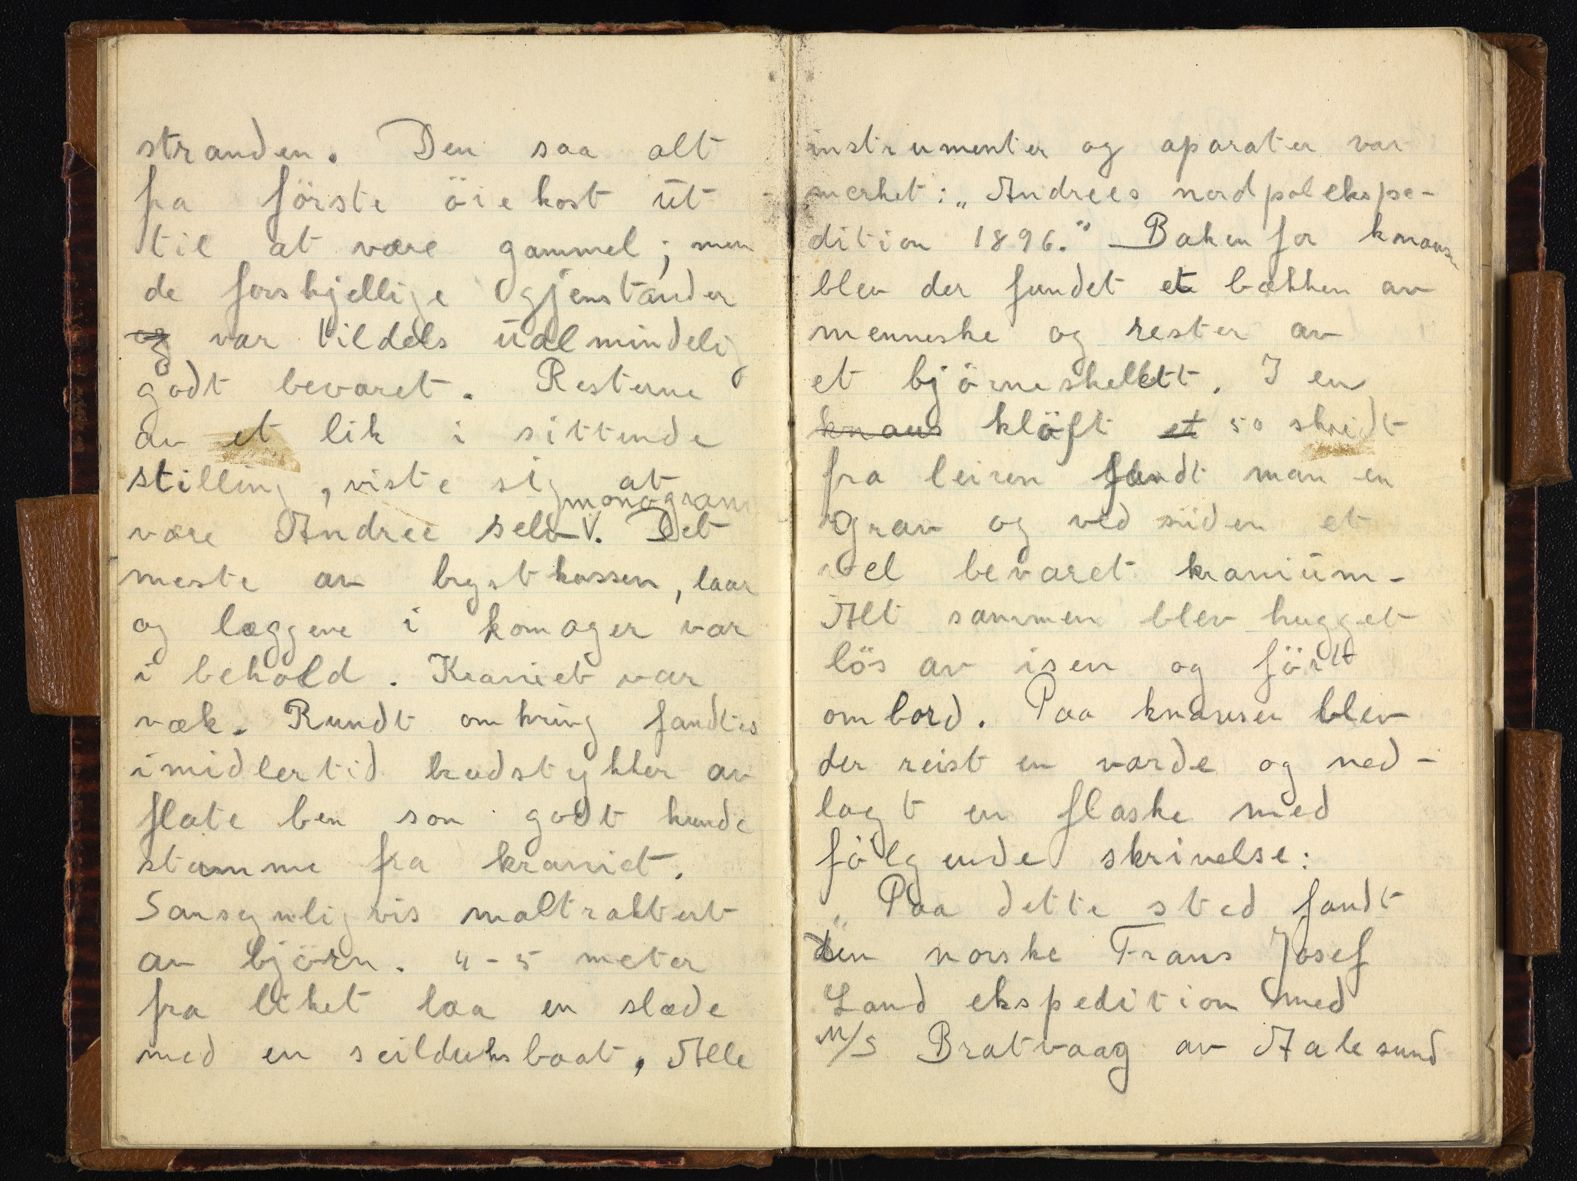 stranden. Den saa alt
fra förste öiekast ut
til at være gammel; men
de forskjellige gjenstander
og var tildels ualmindelig
godt bevaret. Resterne
av et lik i sittende
stilling, viste sig at
monogram
være Andree selv V. Det
meste av brystkassen, laar
og læggene i komager var
i behold. Kraniet var
væk. Rundt omkring fandtes
imidlertid brudstykker av
flate ben som godt kunde
stamme fra kraniet.
Sansynligvis maltraktert
av björn. 4-5 meter
fra liket laa en slæde
med en seilduksbaat. Alle
instrumenter og aparater var
merket: „Andrees nordpolekspe-
dition 1896." Bakenfor knausen
blev der fundet et bækken av
menneske og rester av
et björneskelett. I en
knaus klöft et 50 skridt
fra leiren fandt man en
grav og ved siden et
vel bevaret kranium-
Alt sammen blev hugget
lös av isen og fört
ombord. Paa knausen blev
der reist en varde og ned-
lagt en flaske med
fölgende skrivelse:
„Paa dette sted fandt
den norske Frans Josef
Land ekspedition med
M/S Bratvaag av Aalesund